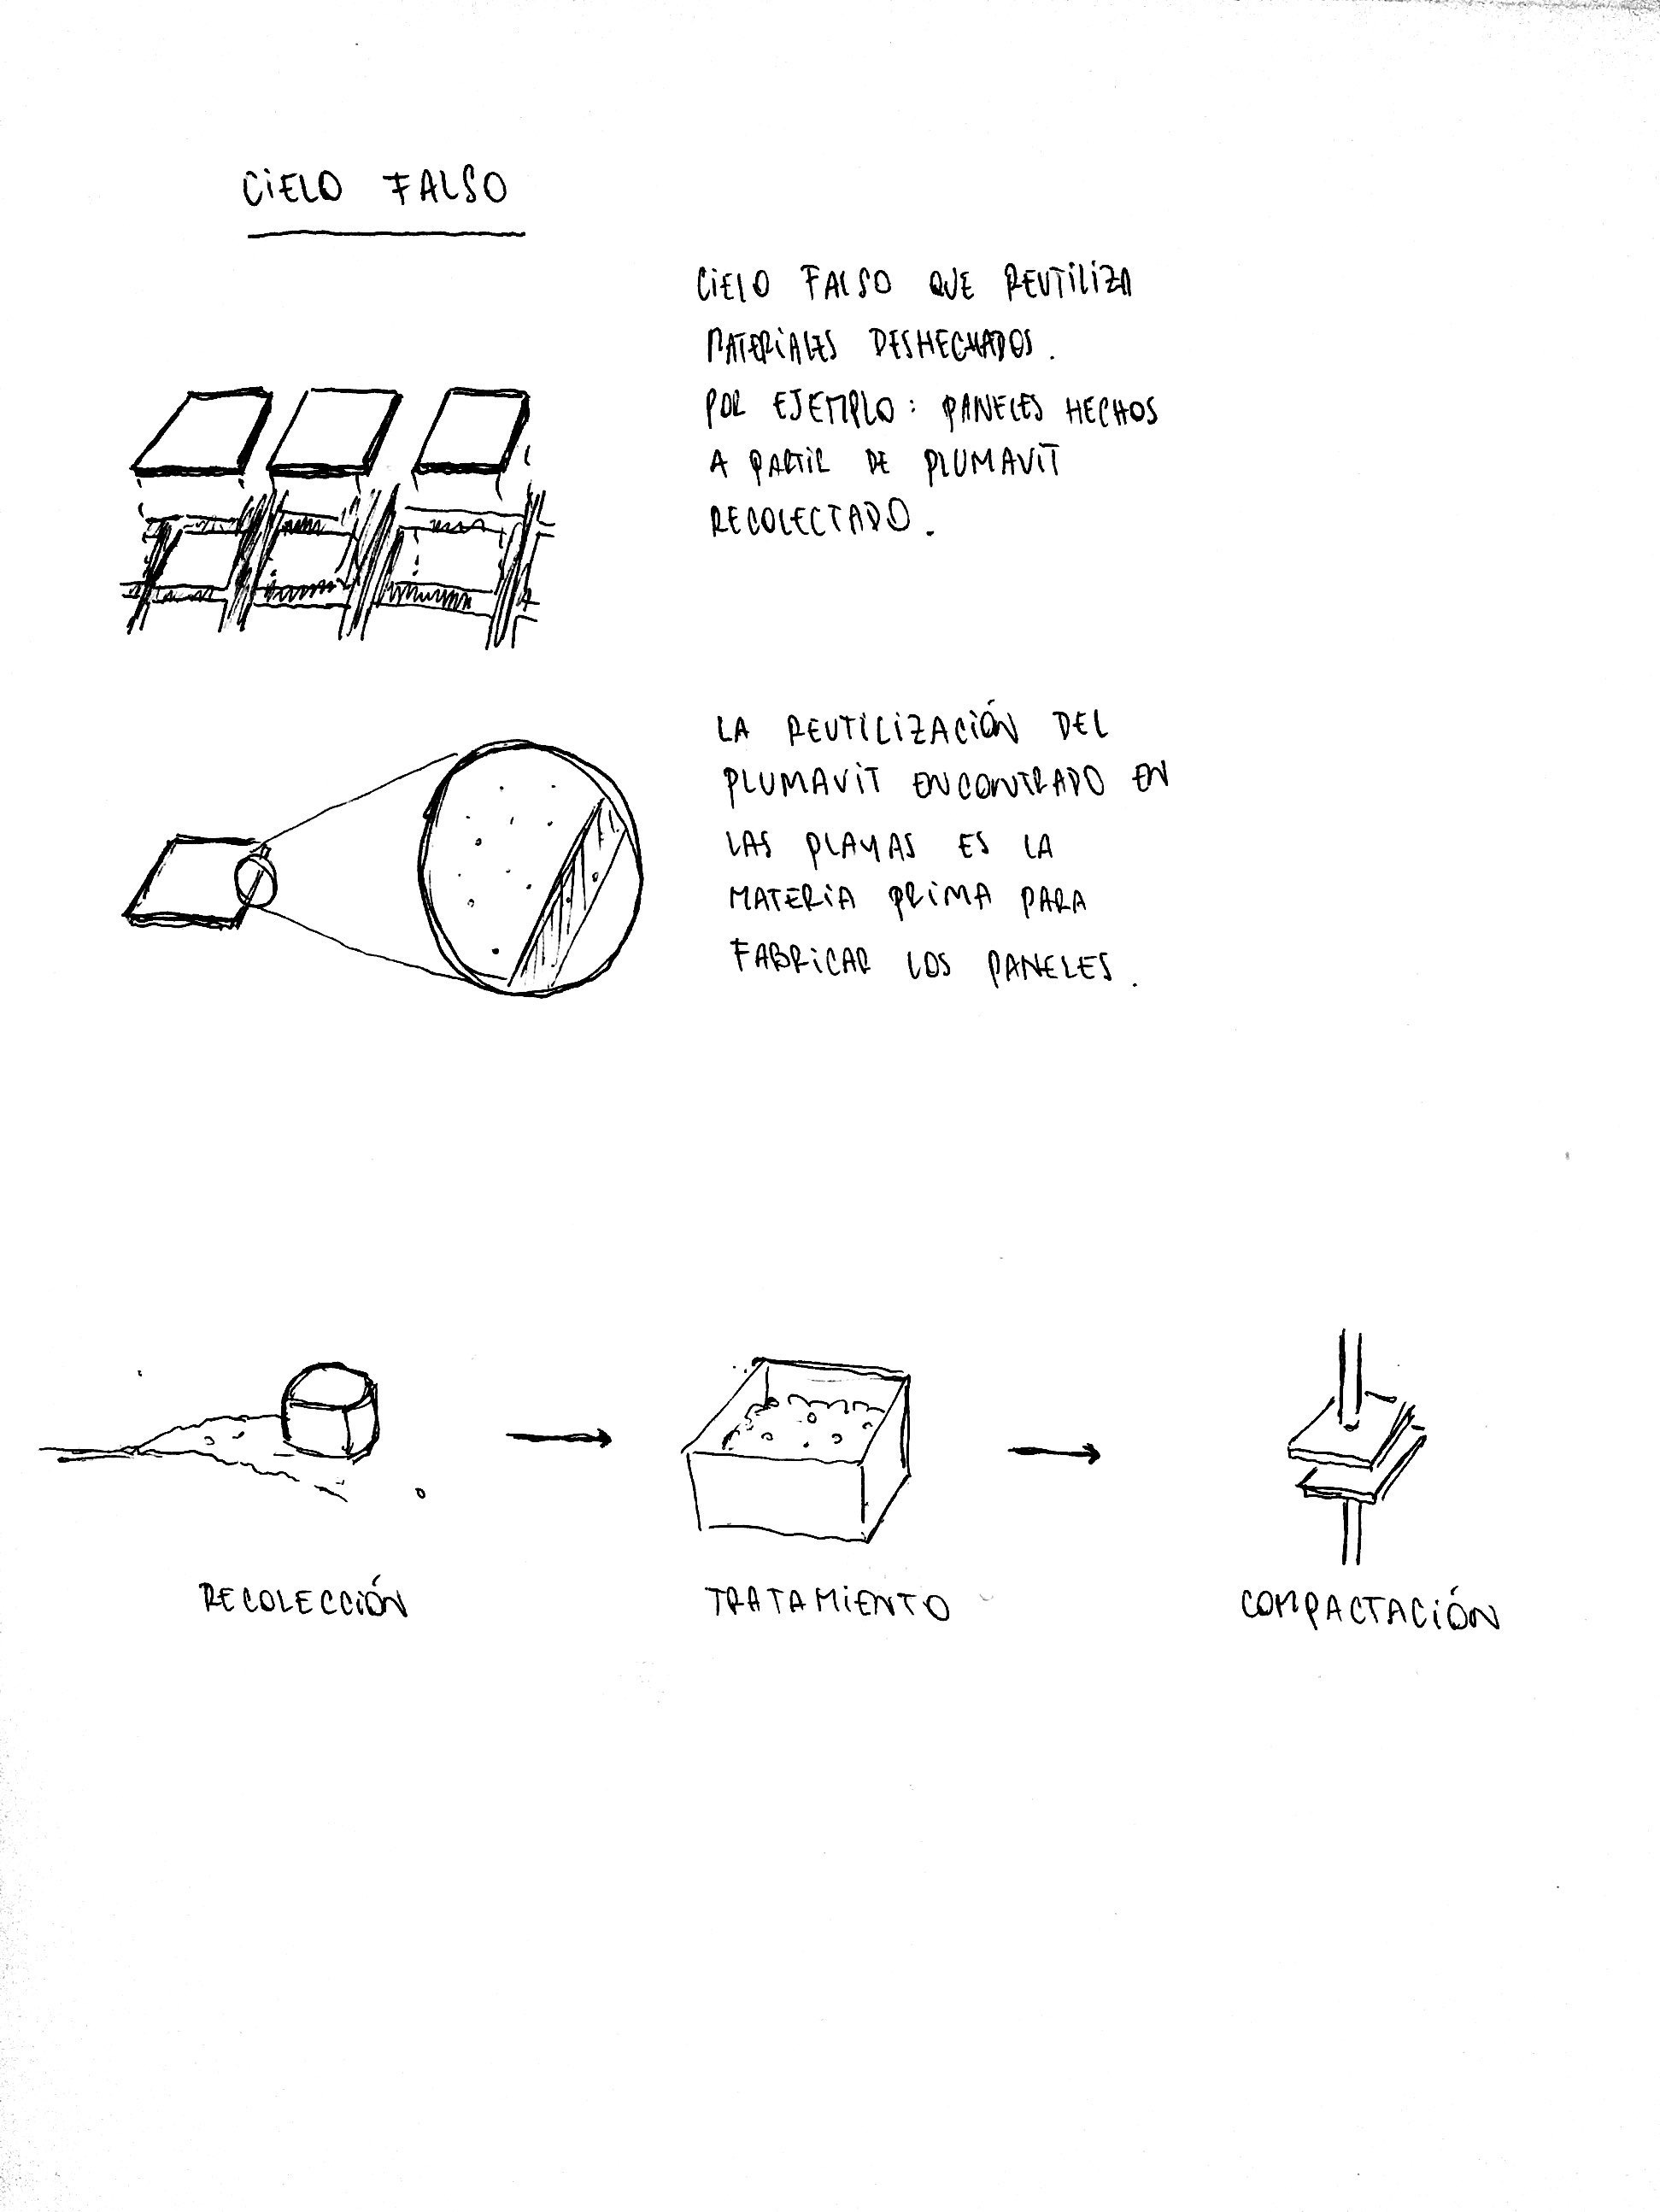 CIELO FALSO
CIELO FALSO QUE REUTILIZA
MATERIALES DESHECHADOS.
POR EJEMPLO: PANELES HECHOS
A PARTIR DE PLUMAVIT
RECOLECTADO.
LA REUTILIZACIÓN DEL
PLUMAVIT ENCONTRADO EN
LAS PLAYAS ES LA
MATERIA PRIMA PARA
FABRICAR LOS PANELES.
RECOLECCIÓN
TRATAMIENTO
COMPACTACIÓN